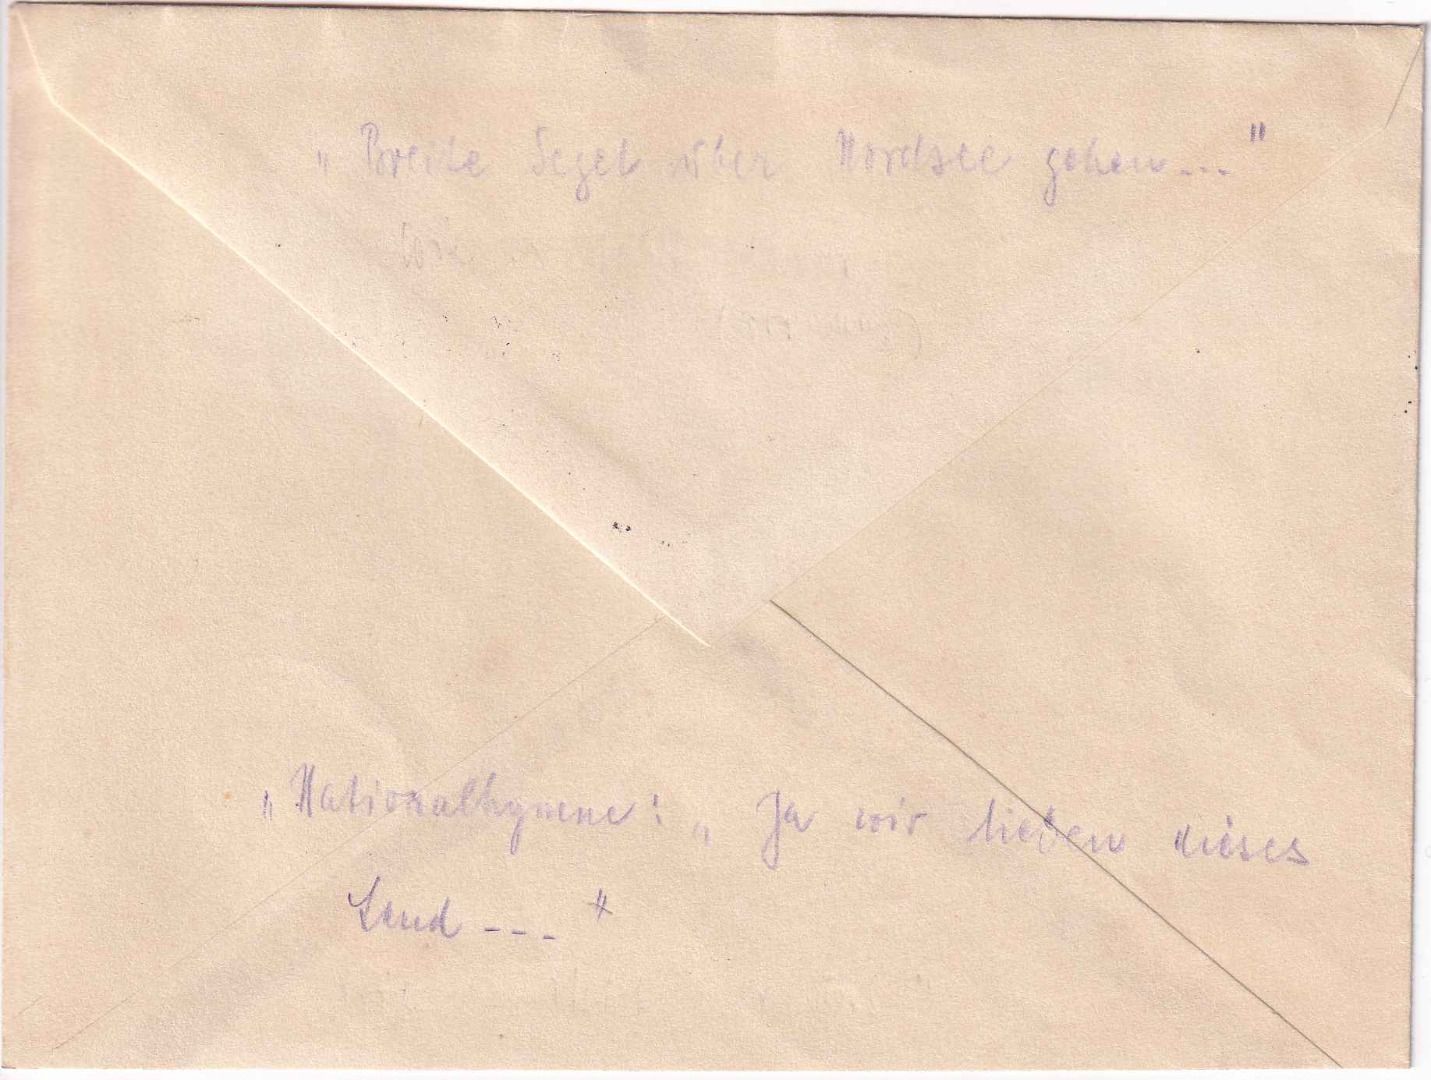 „Breite Segel über Nordsee gehen..."
„Nationalhymne: „ Ja wir lieben dieses
Land --- "